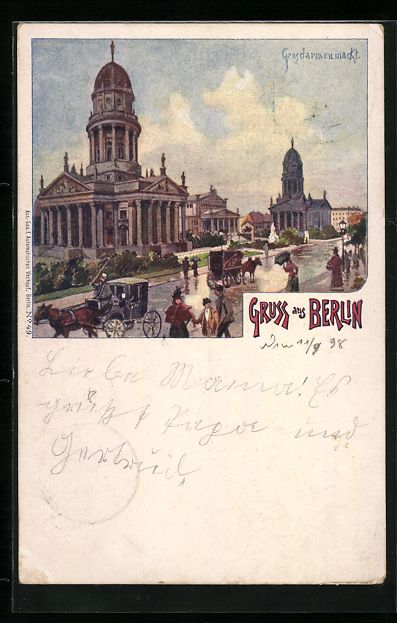 Gensdarmenmarkt.
GRUSS aus BERLIN
11/9 98
Liebe Mama! Es
grüßt Papa und
Gertrud.